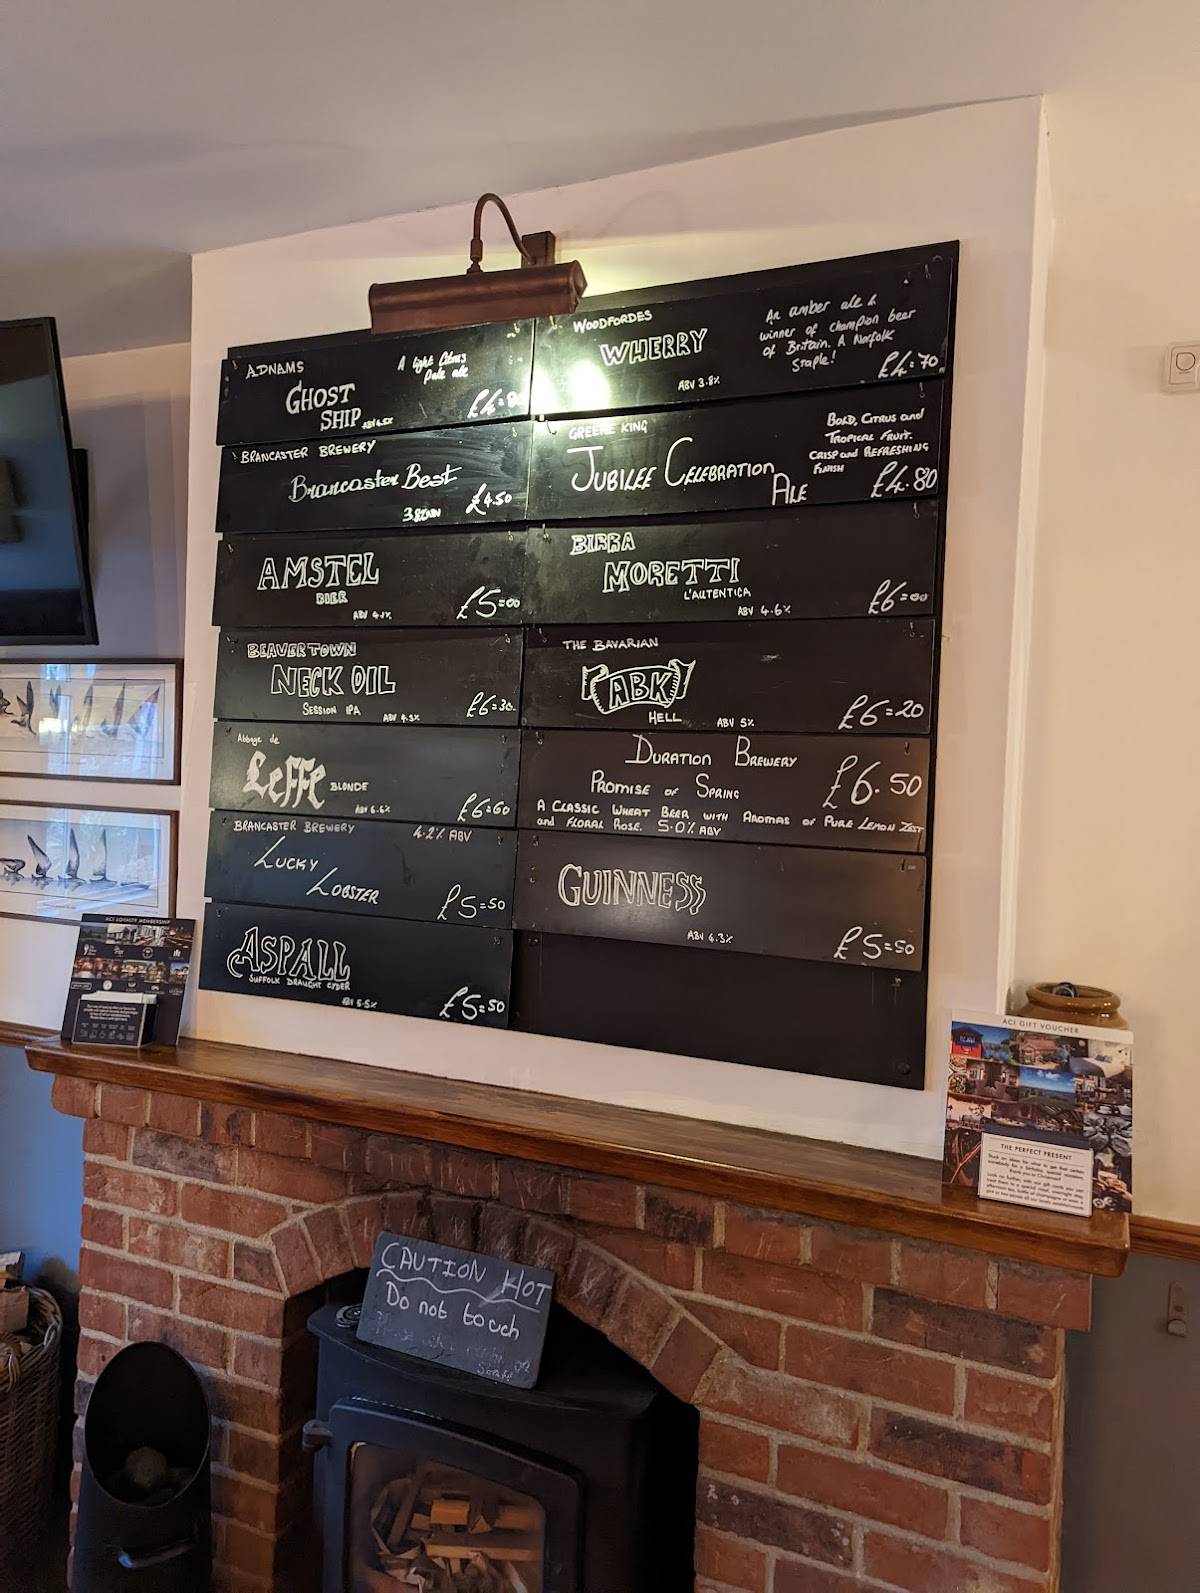 ADNAMS
GHOST
SHIP
ABV 4.5%
A light Citrus
Pale ale
WOODFORDES
WHERRY
ABV 3.8%
An amber ale &
winner of champion beer
of Britain. A Norfolk
Staple!
£4=70
BRANCASTER BREWERY
Brancaster Best
3.8% ABV
£4.50
GREENE KING
JUBILEE CELEBRATION
ALE
BOLD, CITRUS and
TROPICAL FRUIT.
CRISP and REFRESHING
FINISH
£4.80
AMSTEL
BIER
ABV 4.1%
£5=00
BIRRA
MORETTI
L'AUTENTICA
ABV 4.6%
£6=00
BEAVERTOWN
NECK OIL
SESSION IPA
ABV 4.3%
£6=30
THE BAVARIAN
ABK
HELL
ABV 5%
£6=20
Abbaye de
Leffe
BLONDE
ABV 6.6%
£6=60
DURATION BREWERY
PROMISE OF SPRING
£6.50
A CLASSIC WHEAT BEER WITH AROMAS OF PURE LEMON ZEST
and FLORAL ROSE. 5.0% ABV
BRANCASTER BREWERY
4.2% ABV
LUCKY
LOBSTER
£5=50
GUINNESS
ABV 4.3%
£5=50
ASPALL
SUFFOLK DRAUGHT CYDER
ABV 5.5%
£5=50
ACI LOYALTY MEMBERSHIP
ACI GIFT VOUCHER
THE PERFECT PRESENT
CAUTION HOT
Do not touch